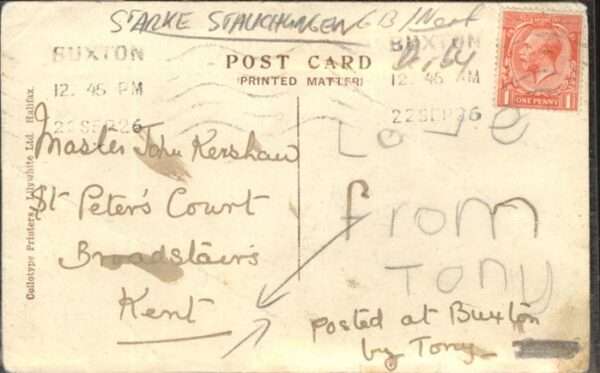 STARKE STAUCHUNGEN GB/
BUXTON
12. 45 PM
22 SEP 26
POST CARD
(PRINTED MATTER)
BUXTON
12. 45 PM
22 SEP 26
ONE PENNY
1 1
Collotype Printers, Lilywhite Ltd. Halifax.
Master John Kershaw
St Peter's Court
Broadstairs
Kent
Love
from
Tony
Posted at Buxton
by Tony